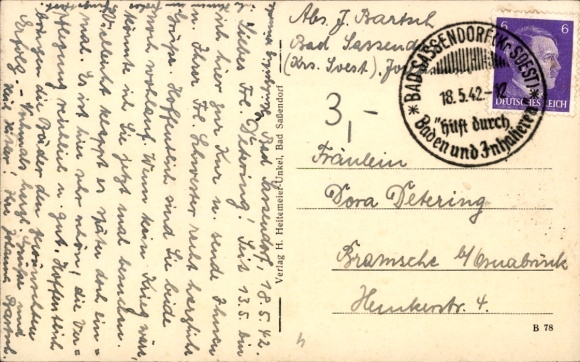 Bad Sassendorf, 18.5.42.
Liebes Frl. Detering! Seit 13.5. bin
ich hier zur Kur u. sende Ihnen
u. Ihrer Frl. Schwester recht herzliche
Grüße. Hoffentlich sind Sie beide
noch wohlauf. Wenn kein Krieg wär,
könnte ich Sie jetzt mal besuchen.
Vielleicht klappt es später doch ein-
mal. Es ist hier sehr schön, die Ver-
pflegung reichlich u. gut. Hoffentlich
bringen die Bäder den erwünschten
Erfolg. Nochmals herzl. Grüße und
Heil Hitler! Ihr Johann Bartsch
Verlag H. Heitemeier-Unkel, Bad Saßendorf
Abs. J. Bartsch
Bad Sassendorf
(Krs. Soest)
3,-
* BAD SASSENDORF (KR. SOEST) *
18.5.42.-12
"Hilft durch
Baden und Inhalieren"
6 6
DEUTSCHES REICH
Fräulein
Dora Detering
Bramsche b/Osnabrück
Henkerstr. 4.
B 78